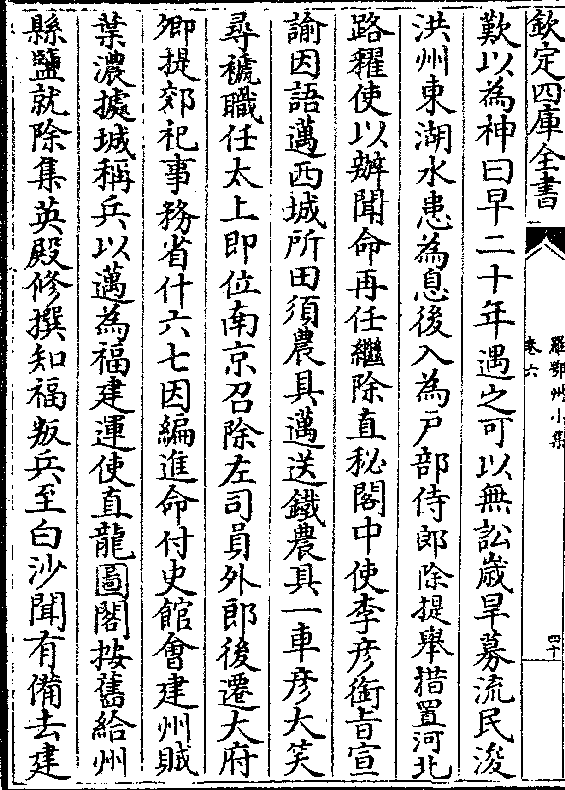 欽定四庫全書
羅鄂州小集
卷六
四十
歎以為神曰早二十年遇之可以無訟歳旱募流民浚
洪州東湖水患為息後入為户部侍郎除提舉措置河北
路糴使以辦聞命再任繼除直秘閣中使李彦銜旨宣
諭因語邁西城所田須農具邁送鐵農具一車彦大笑
尋褫職任太上即位南京召除左司員外郎後遷大府
卿提郊祀事務省什六七因編進命付史館會建州賊
葉濃據城稱兵以邁為福建運使直龍圖閣按舊給州
縣鹽就除集英殿修撰知福叛兵至白沙聞有備去建